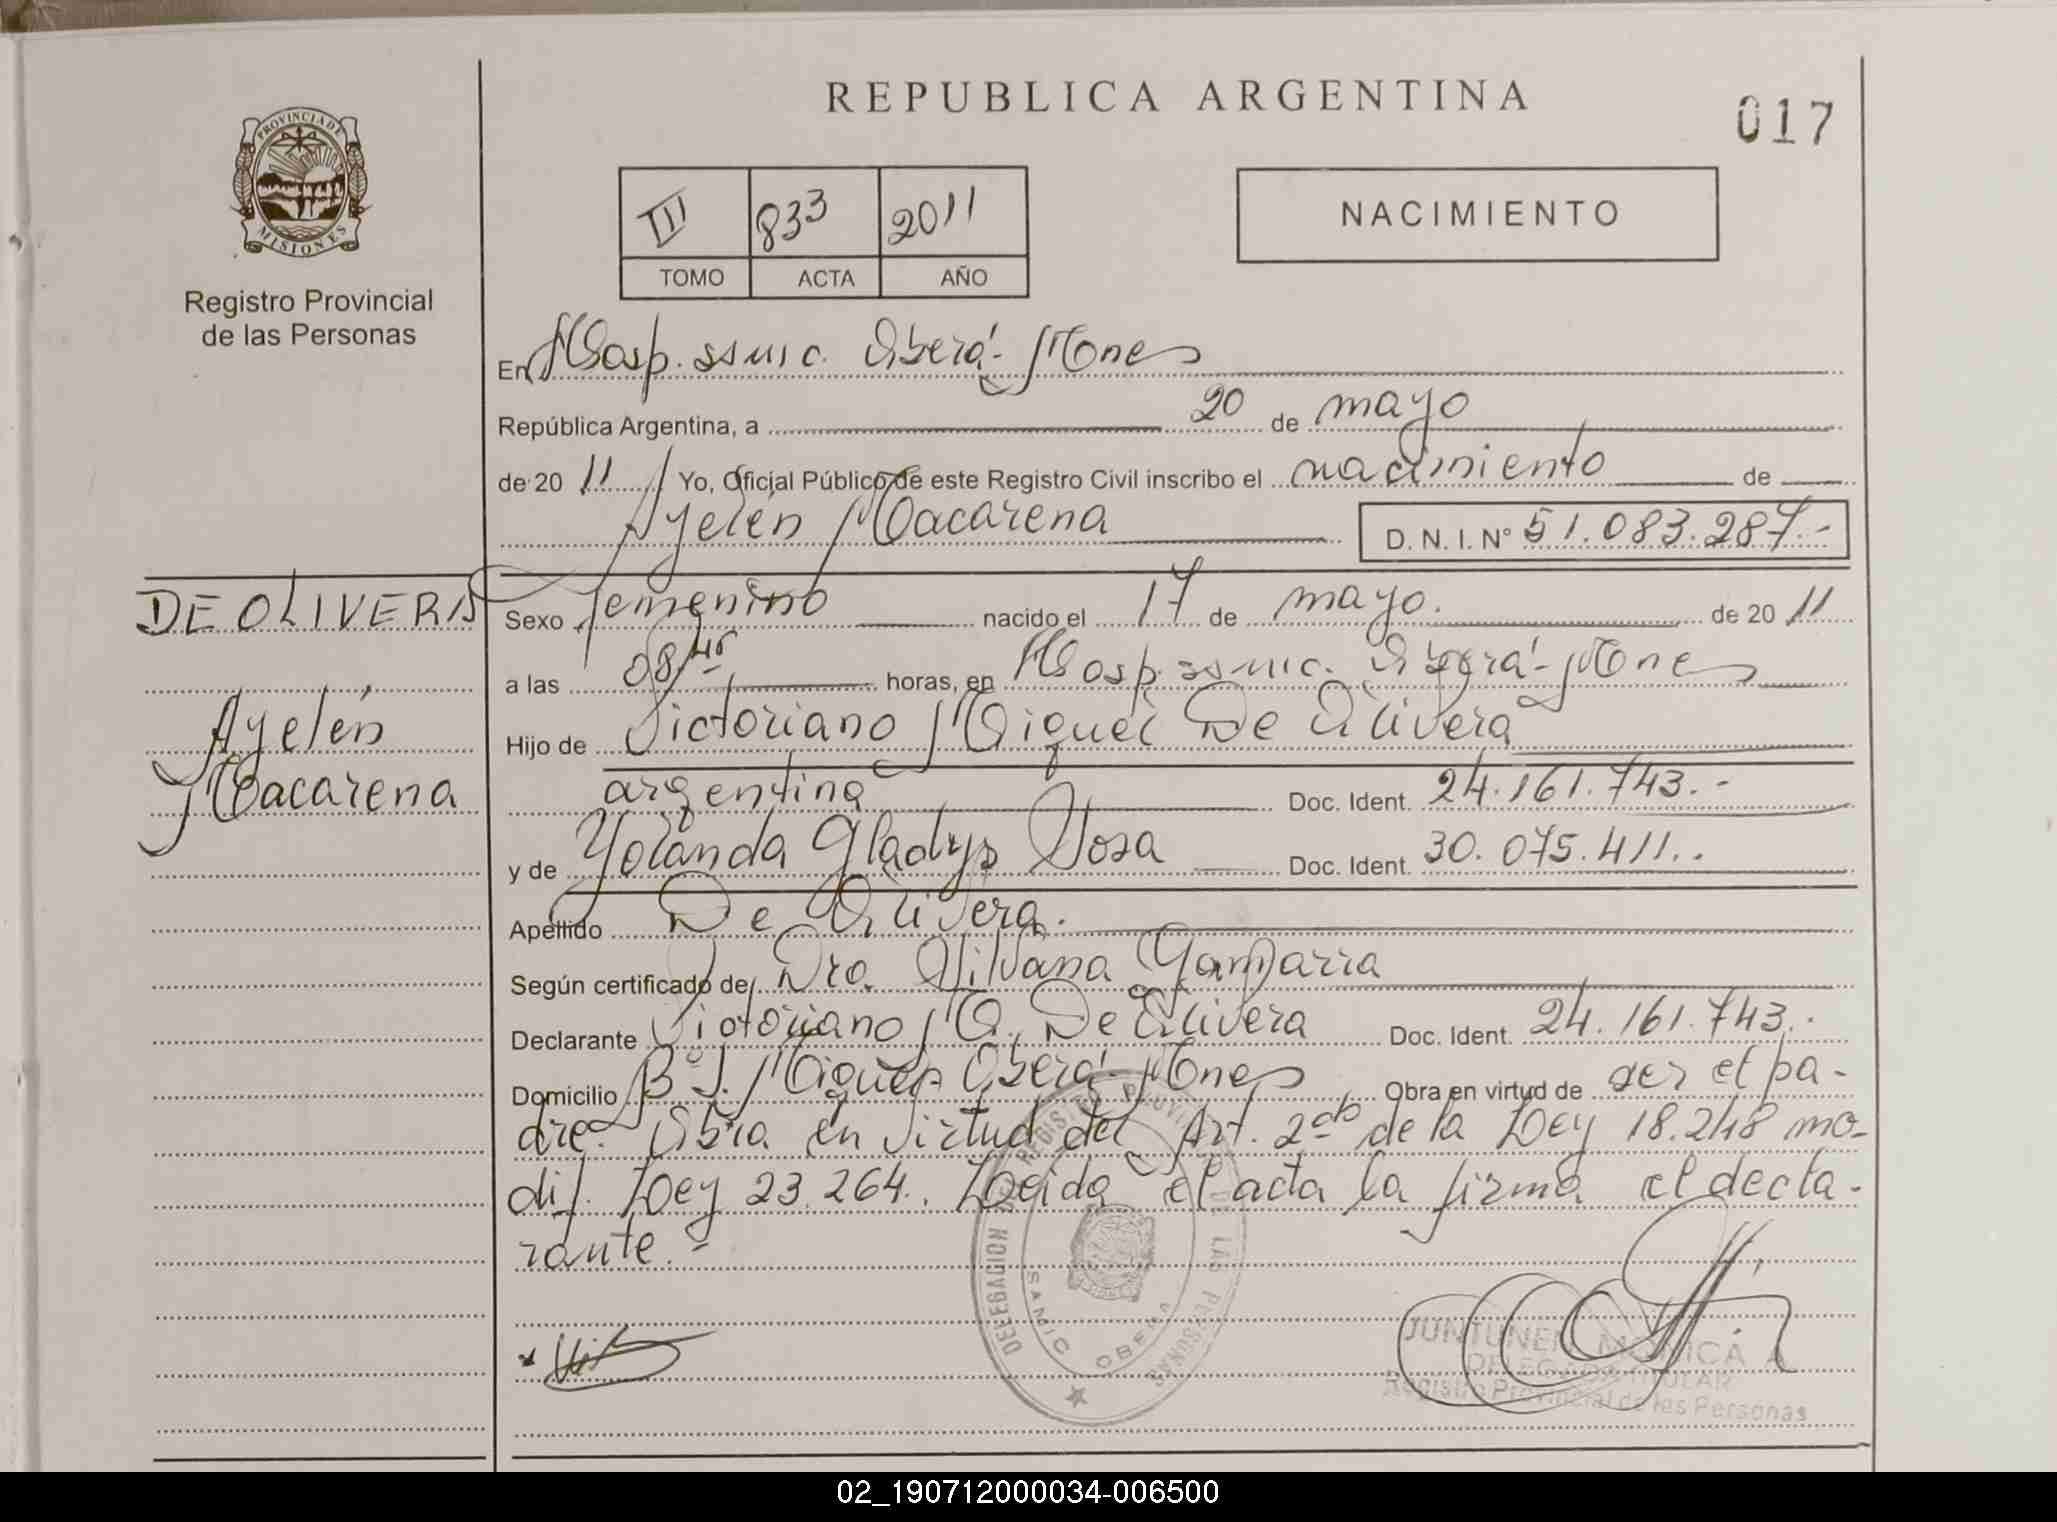 REPUBLICA ARGENTINA
017
PROVINCIA DE
MISIONES
Registro Provincial
de las Personas
III 833 2011
TOMO ACTA AÑO
NACIMIENTO
En Hosp. ssmic. Oberá - Mnes
República Argentina, a 20 de mayo
de 20 11 Yo, Oficial Público de este Registro Civil inscribo el nacimiento de
Ayelén Macarena D. N. I. N° 51.083.287.-
DE OLIVERA
Ayelén
Macarena
Sexo femenino nacido el 17 de mayo. de 20 11
a las 08/45 horas, en Hosp. ssmic. Oberá - Mnes
Hijo de Victoriano Miguel De Olivera
argentina Doc. Ident. 24.161.743.-
y de Yolanda Gladys Sosa Doc. Ident. 30.075.411..
Apellido De Olivera.
Según certificado de Dra. Silvana Gamarra
Declarante Victoriano M. De Olivera Doc. Ident. 24.161.743.-
Domicilio B° S. Miguel Oberá - Mnes Obra en virtud de ser el pa-
dre. Obra en virtud del Art. 2do de la Ley 18.248 mo-
dif. Ley 23.264. Leida el acta la firma el decla-
rante.-
DELEGACION DEL REGISTRO PROVINCIAL DE LAS PERSONAS
SAMIC OBERA
JUNTUNEN MONICA A
DELEGADA TITULAR
Registro Provincial de las Personas
02_190712000034-006500